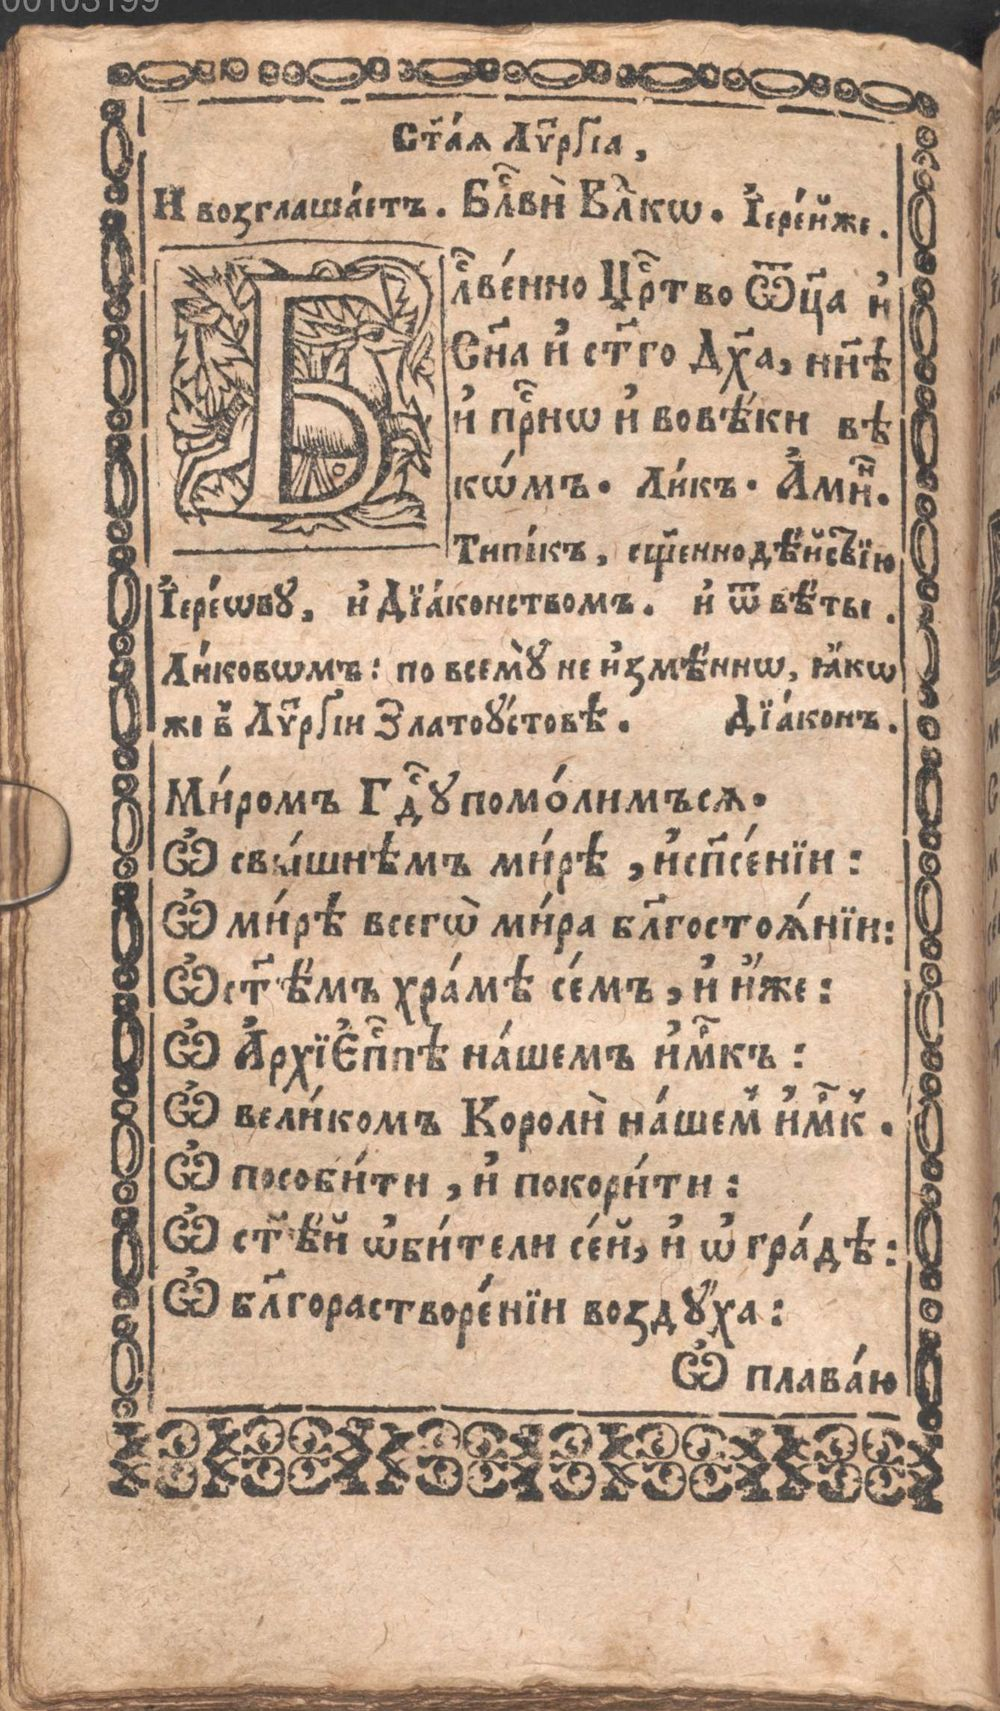 00103199
Ст҃а́ѧ Лѵ҃рᲂїа,
И возглаша́етъ. Бл҃вѝ Вл҃кѡ. І҆ере́йже.
Бл҃ве́нно Цр҃тво Ѿц҃а и҆
Сн҃а и҆ ст҃го Дх҃а, нн҃ѣ
и҆ пр҃нѡ и҆ вовѣ́ки вѣ
кѡ́мъ. Ли́къ. А҆ми́н.
Типі́къ, сщ҃еннодѣ́йствїю
І҆ере́ѡвꙋ, и҆ Дїа́конствомъ. и҆ ѿвѣ́ты.
Ли́ковѡмъ: по всемꙋ̀ не и҆змѣ́ннѡ, ꙗ҆́кѡ
же в̾ Лѵ҃ргїи Златоꙋ́стовѣ. Дїа́конъ.
Ми́ромъ Гд҃ꙋ помо́лимъсѧ.
Ѽ свы́шнѣмъ ми́рѣ, и҆сп҃се́нїи:
Ѽ ми́рѣ всегѡ̀ ми́ра бл҃гостоѧ́нїи:
Ѽ ст҃ѣ́мъ хра́мѣ се́мъ, и҆ и҆́же:
Ѽ А҆рхїЕ҆п҃пѣ на́шемъ и҆м҃къ:
Ѽ вели́комъ Королѝ на́шем̾ и҆м҃к̾.
Ѽ пособи́ти, и҆ покори́ти:
Ѽ ст҃ѣ́й ѡ҆би́тели се́й, и҆ ѡ҆ гра́дѣ:
Ѽ бл҃горастворе́нїи воздꙋ́ха:
Ѽ плава́ю